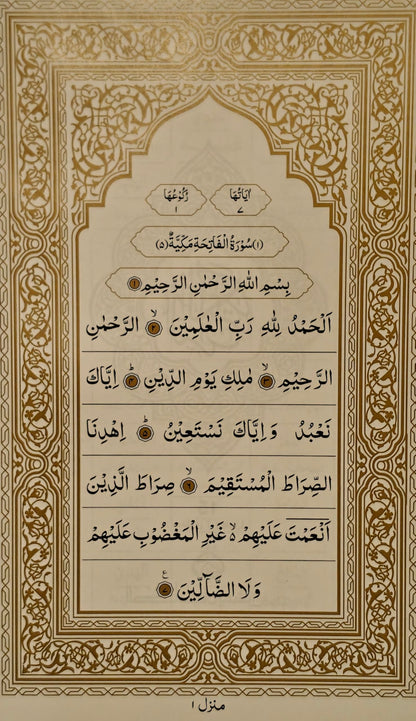 اٰيَاتُهَا ٧
رُكُوْعُهَا ١
(١) سُوْرَةُ الْفَاتِحَةِ مَكِّيَّةٌ (٥)
بِسْمِ اللّٰهِ الرَّحْمٰنِ الرَّحِيْمِ ۝١
اَلْحَمْدُ لِلّٰهِ رَبِّ الْعٰلَمِيْنَ ۙ۝٢ الرَّحْمٰنِ
الرَّحِيْمِ ۙ۝٣ مٰلِكِ يَوْمِ الدِّيْنِ ؕ۝٤ اِيَّاكَ
نَعْبُدُ وَ اِيَّاكَ نَسْتَعِيْنُ ؕ۝٥ اِهْدِنَا
الصِّرَاطَ الْمُسْتَقِيْمَ ۙ۝٦ صِرَاطَ الَّذِيْنَ
اَنْعَمْتَ عَلَيْهِمْ ۙ۬ غَيْرِ الْمَغْضُوْبِ عَلَيْهِمْ
وَلَا الضَّآلِّيْنَ ۝٧ ع
منزل ١